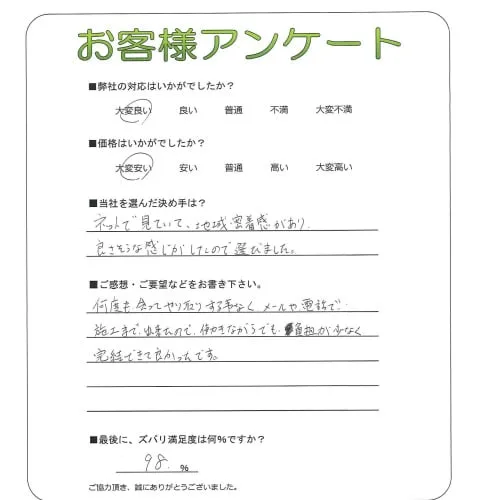 お客様アンケート
■弊社の対応はいかがでしたか？
大変良い 良い 普通 不満 大変不満
■価格はいかがでしたか？
大変安い 安い 普通 高い 大変高い
■当社を選んだ決め手は？
ネットで見ていて、地域密着感があり、
良さそうな感じがしたので選びました。
■ご感想・ご要望などをお書き下さい。
何度も会ってやり取りする事なく メールや電話で
施工まで出来たので、働きながらでも、負担が少なく
完結できて良かったです。
■最後に、ズバリ満足度は何%ですか？
98. %
ご協力頂き、誠にありがとうございました。